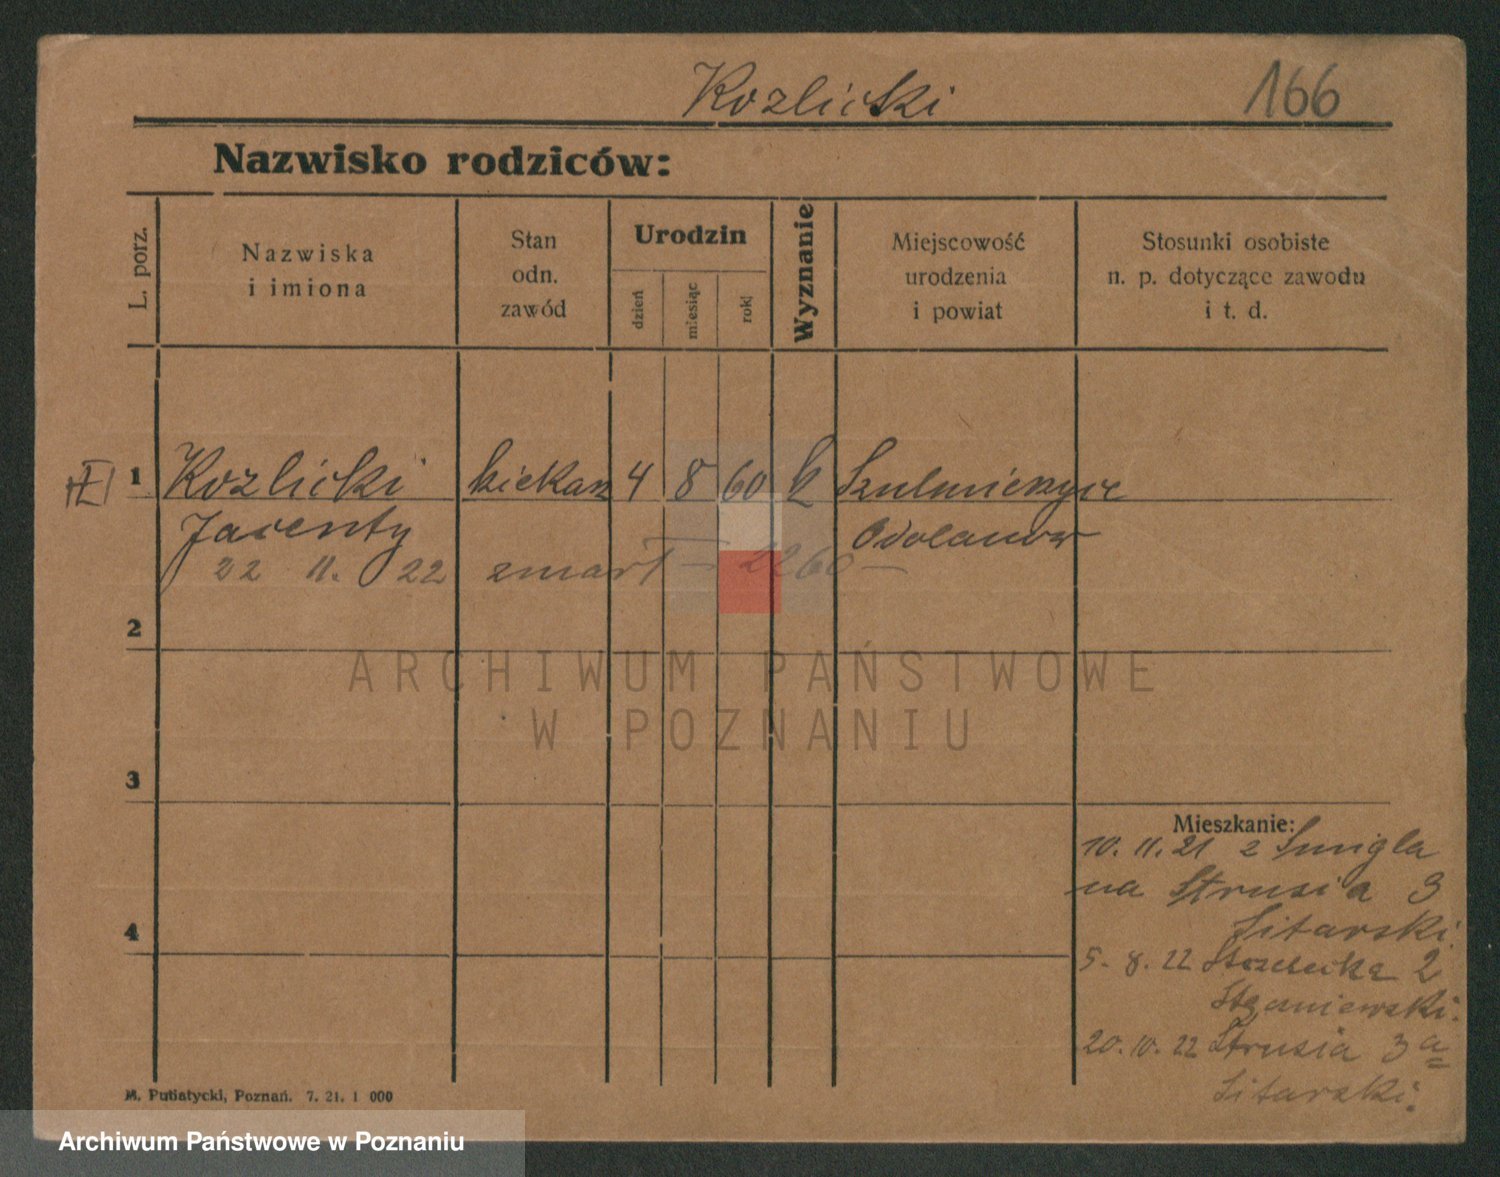 Kozlicki 166
Nazwisko rodziców:
L. porz.
Nazwiska
i imiona
Stan
odn.
zawód
Urodzin
dzień
miesiąc
rok
Wyznanie
Miejscowość
urodzenia
i powiat
Stosunki osobiste
n. p. dotyczące zawodu
i t. d.
1 Kozlicki 4 8 60 k
Jacenty Odolanow
22 11. 22 zmarł — 2260 —
2
ARCHIWUM PAŃSTWOWE
W POZNANIU
3
Mieszkanie:
10. 11. 21 z Smigla
na Strusia 3
Sitarski.
4
5. 8. 22 2
20. 10. 22 Strusia 3a
Sitarski.
M. Putiatycki, Poznań. 7. 21. 1 000
Archiwum Państwowe w Poznaniu